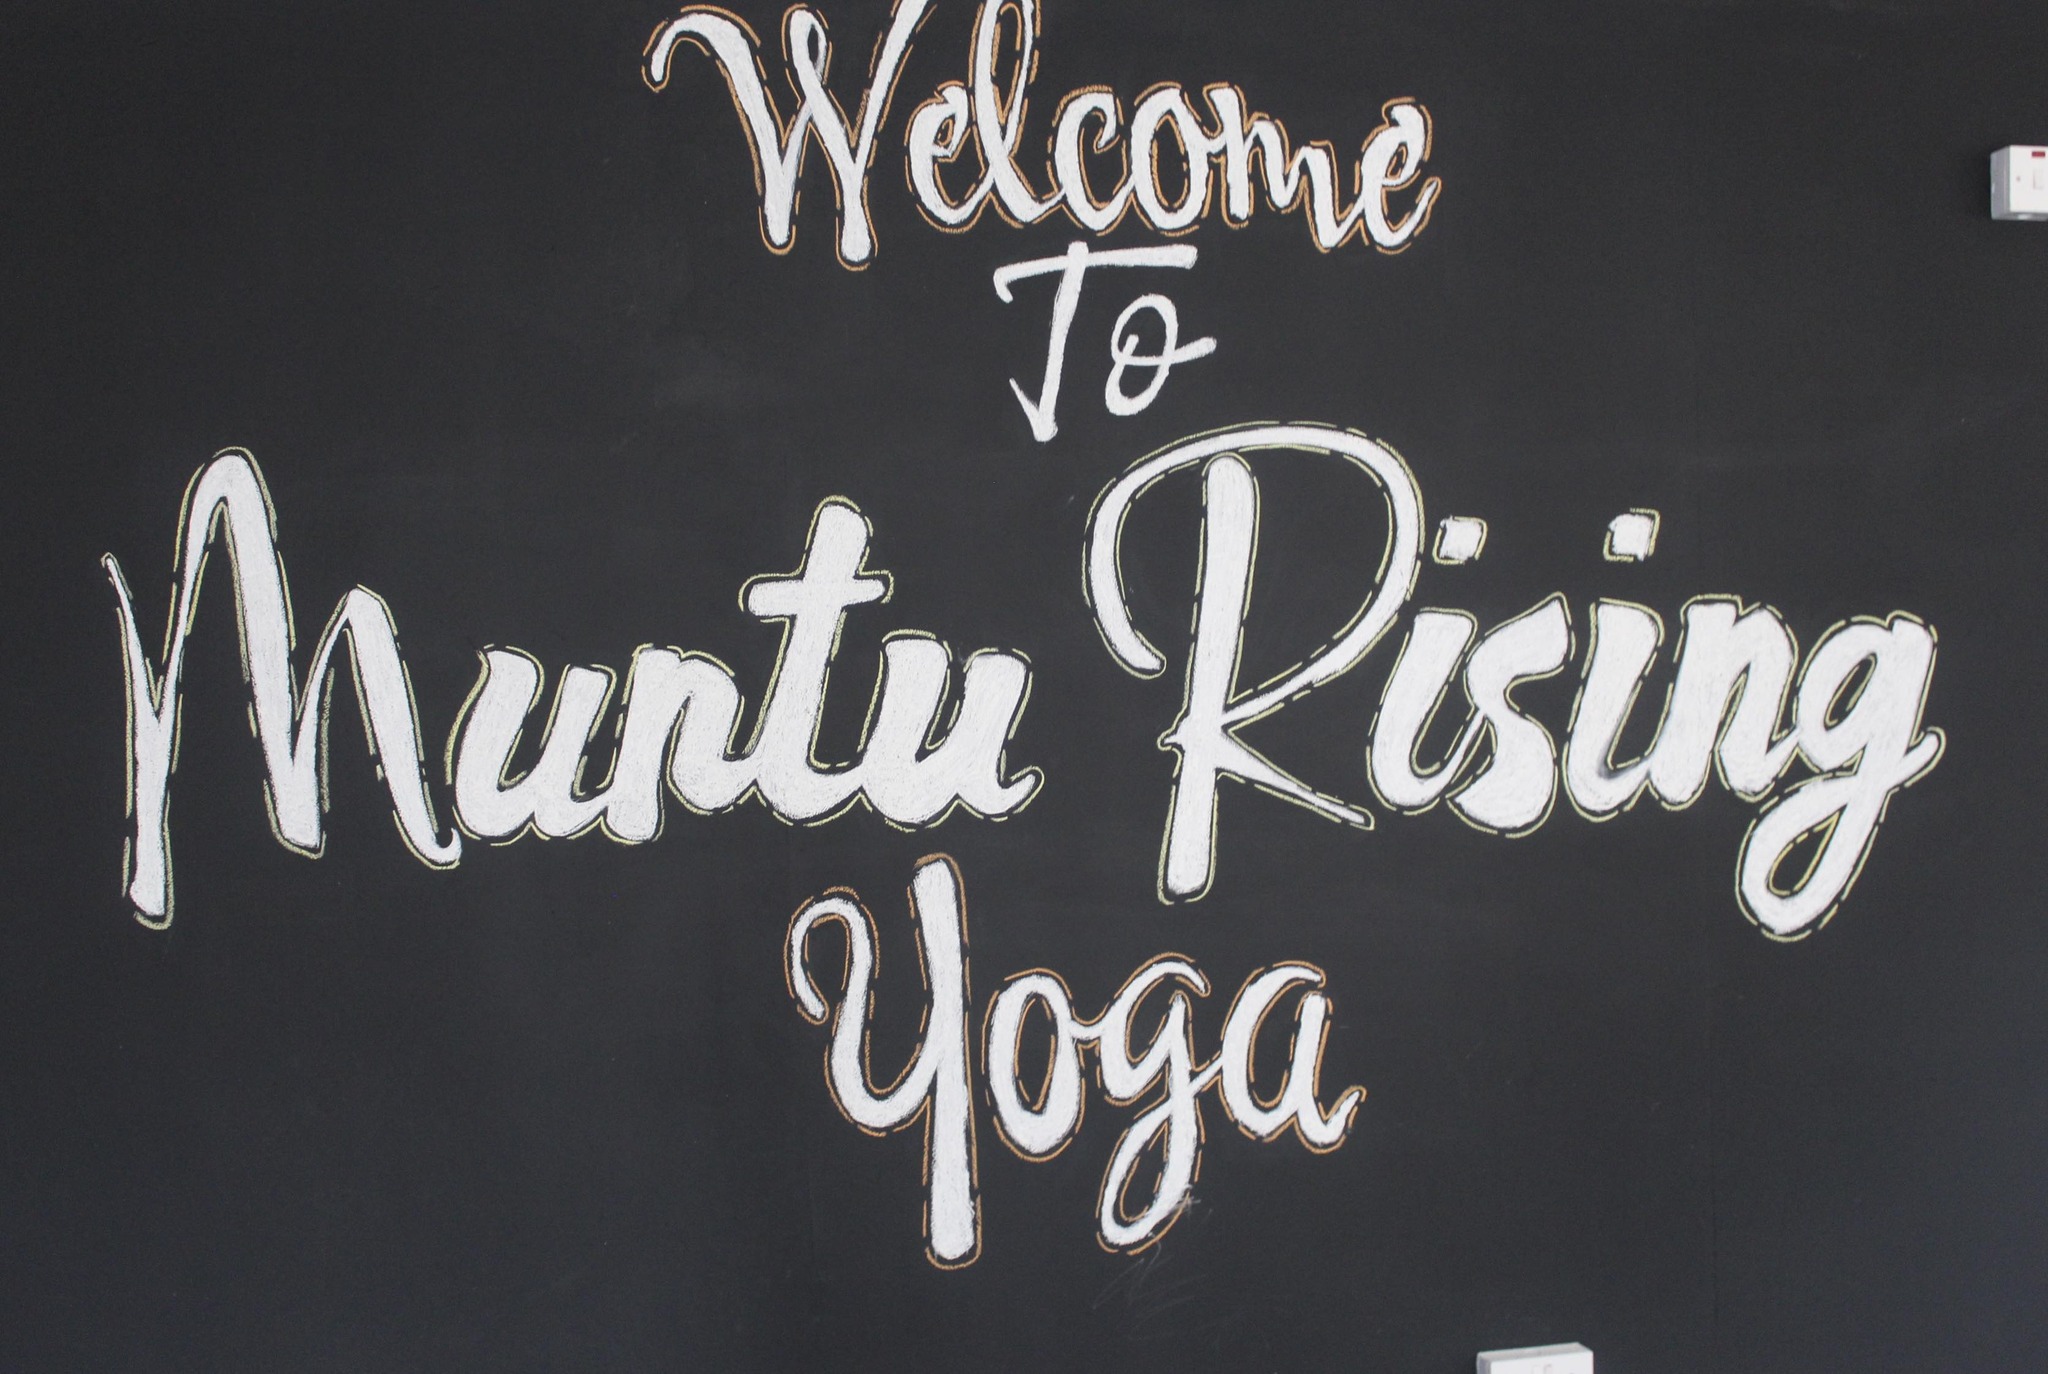 Welcome
To
Muntu Rising
Yoga